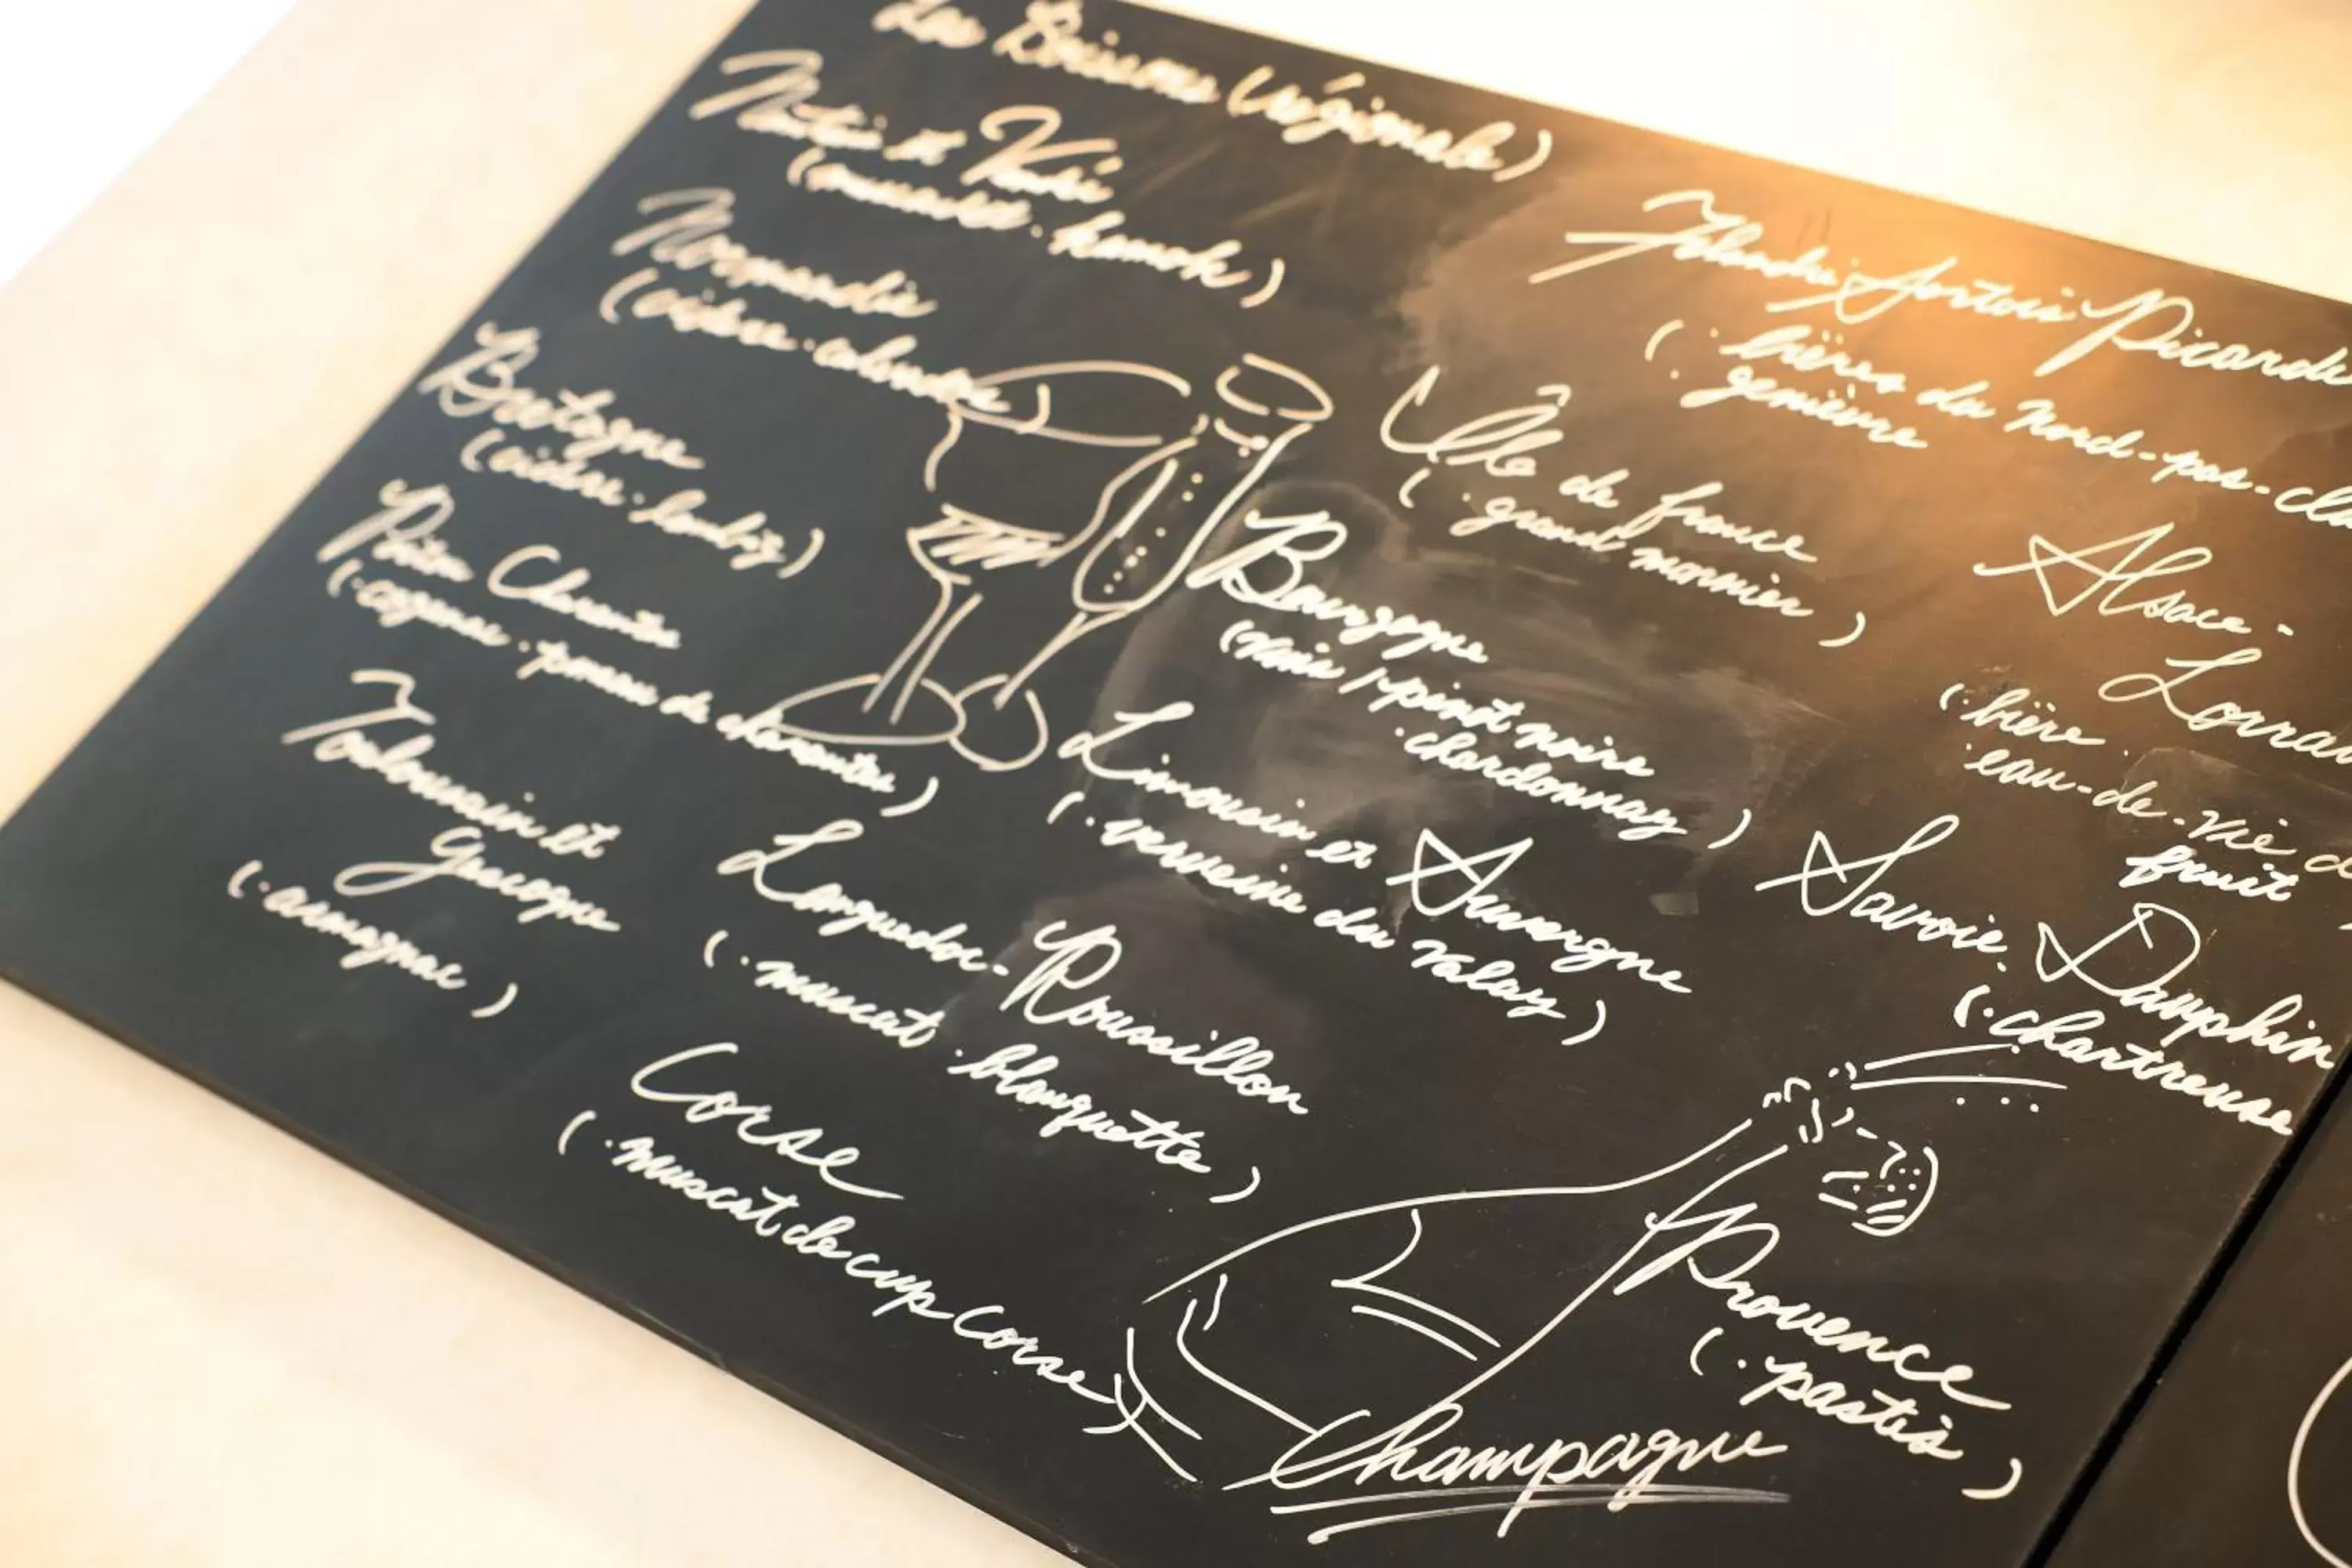 Les Boissons (régionale)
Nantais et Vendée
(muscadet · kamok)
Normandie
(cidre · calvados)
Bretagne
(cidre · lambig)
Poitou Charentes
(· cognac · pineau de charentes)
Toulousain et
Gascogne
(· armagnac)
Languedoc-Roussillon
(· muscat · blanquette)
Corse
(· muscat de cup Corse)
Flandre Artois Picardie
(· bières du Nord-pas-
· genièvre
Île de france
(· grand mornier)
Bourgogne
(vin / · pinot noire
· chardonnay)
Limousin et Auvergne
(· verveine du Valay)
Alsace-
(· bière
· eau-de-vie
fruit
Savoie. Dauphin
(· chartreuse
Provence
(· pastis)
Champagne